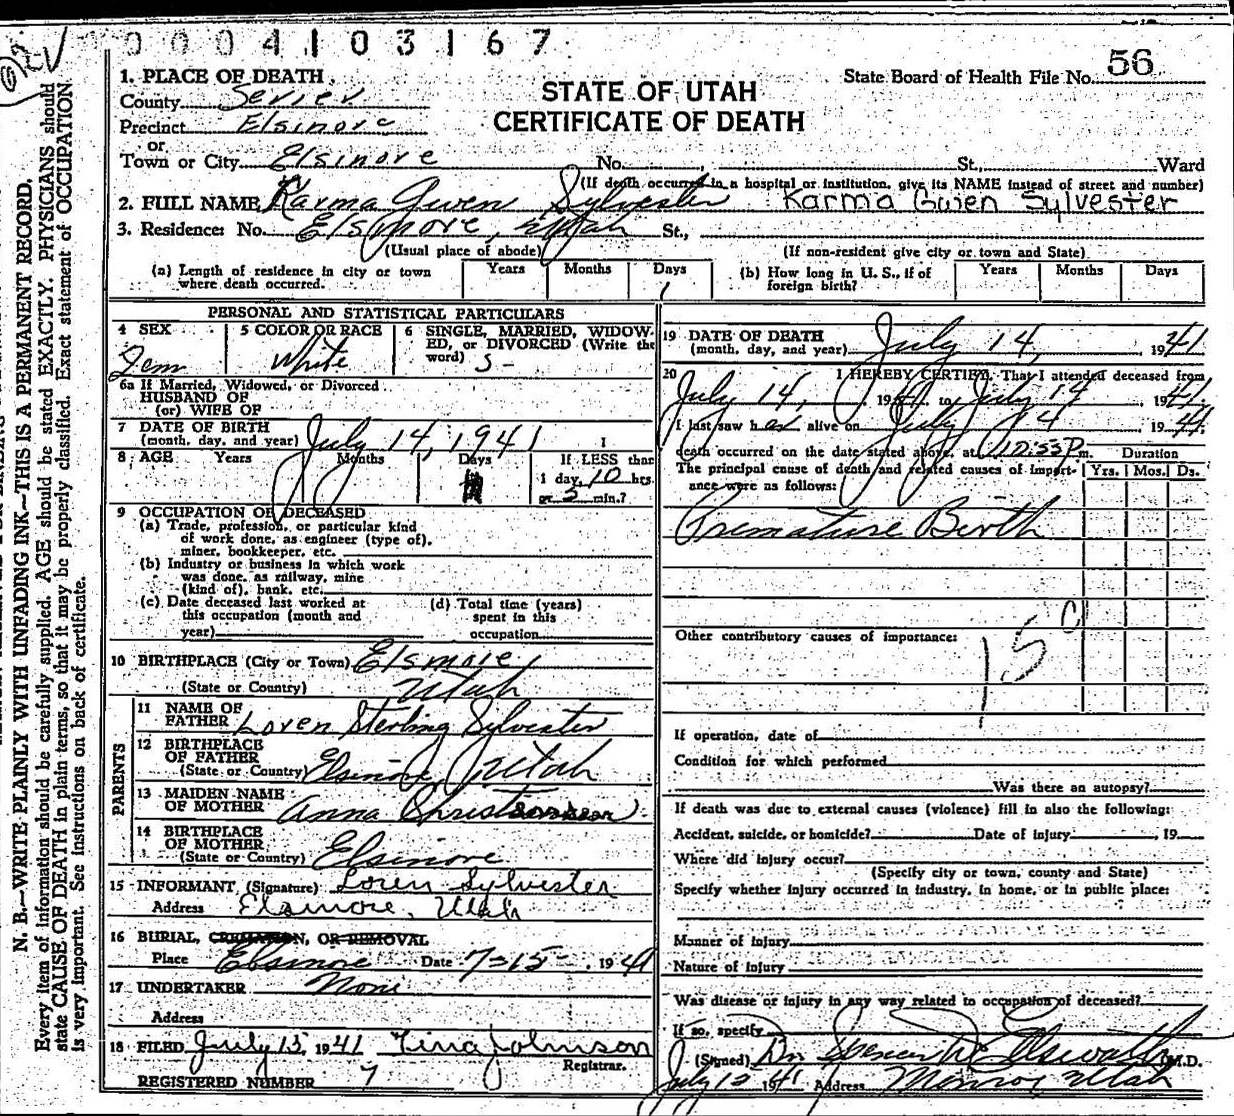 0004103167
State Board of Health File No. 56
STATE OF UTAH
CERTIFICATE OF DEATH
1. PLACE OF DEATH
County Sevier
Precinct Elsinore
or
Town or City Elsinore No. St., Ward
(If death occurred in a hospital or institution, give its NAME instead of street and number)
2. FULL NAME Karma Gwen Sylvester Karma Gwen Sylvester
3. Residence: No. Elsinore, Utah St.,
(Usual place of abode) (If non-resident give city or town and State)
(a) Length of residence in city or town where death occurred. Years Months Days 1
(b) How long in U. S., if of foreign birth? Years Months Days
PERSONAL AND STATISTICAL PARTICULARS
4 SEX Fem
5 COLOR OR RACE White
6 SINGLE, MARRIED, WIDOWED, or DIVORCED (Write the word) S-
6a If Married, Widowed, or Divorced
HUSBAND OF
(or) WIFE OF
7 DATE OF BIRTH
(month, day, and year) July 14, 1941
8 AGE Years Months Days If LESS than
1 day, 10 hrs.
or 5 min.?
9 OCCUPATION OF DECEASED
(a) Trade, profession, or particular kind
of work done, as engineer (type of),
miner, bookkeeper, etc.
(b) Industry or business in which work
was done, as railway, mine
(kind of), bank, etc.
(c) Date deceased last worked at
this occupation (month and
year)
(d) Total time (years)
spent in this
occupation
10 BIRTHPLACE (City or Town) Elsinore,
(State or Country) Utah
PARENTS
11 NAME OF
FATHER Loren Sterling Sylvester
12 BIRTHPLACE
OF FATHER
(State or Country) Elsinore, Utah
13 MAIDEN NAME
OF MOTHER Anna
14 BIRTHPLACE
OF MOTHER
(State or Country) Elsinore
15 INFORMANT (Signature) Loren Sylvester
Address Elsinore, Utah
16 BURIAL, CREMATION, OR REMOVAL
Place Elsinore Date 7-15- 1941
17 UNDERTAKER None
Address
18 FILED July 15, 1941 Tina Johnson
Registrar.
REGISTERED NUMBER 7
19 DATE OF DEATH
(month, day, and year) July 14, 1941
20 I HEREBY CERTIFY, That I attended deceased from
July 14, 1941, to July 14 1941.
I last saw h alive on July 14 1941.
death occurred on the date stated above, at 10:55 P m.
The principal cause of death and related causes of importance were as follows:
Duration
Yrs. Mos. Ds.
Premature Birth
Other contributory causes of importance:
If operation, date of
Condition for which performed
Was there an autopsy?
If death was due to external causes (violence) fill in also the following:
Accident, suicide, or homicide? Date of injury , 19
Where did injury occur?
(Specify city or town, county and State)
Specify whether injury occurred in industry, in home, or in public place:
Manner of injury
Nature of injury
Was disease or injury in any way related to occupation of deceased?
If so, specify
(Signed) M.D.
July 1941 Address Monroe Utah
N. B.—WRITE PLAINLY WITH UNFADING INK—THIS IS A PERMANENT RECORD.
Every item of information should be carefully supplied. AGE should be stated EXACTLY. PHYSICIANS should
state CAUSE OF DEATH in plain terms, so that it may be properly classified. Exact statement of OCCUPATION
is very important. See instructions on back of certificate.